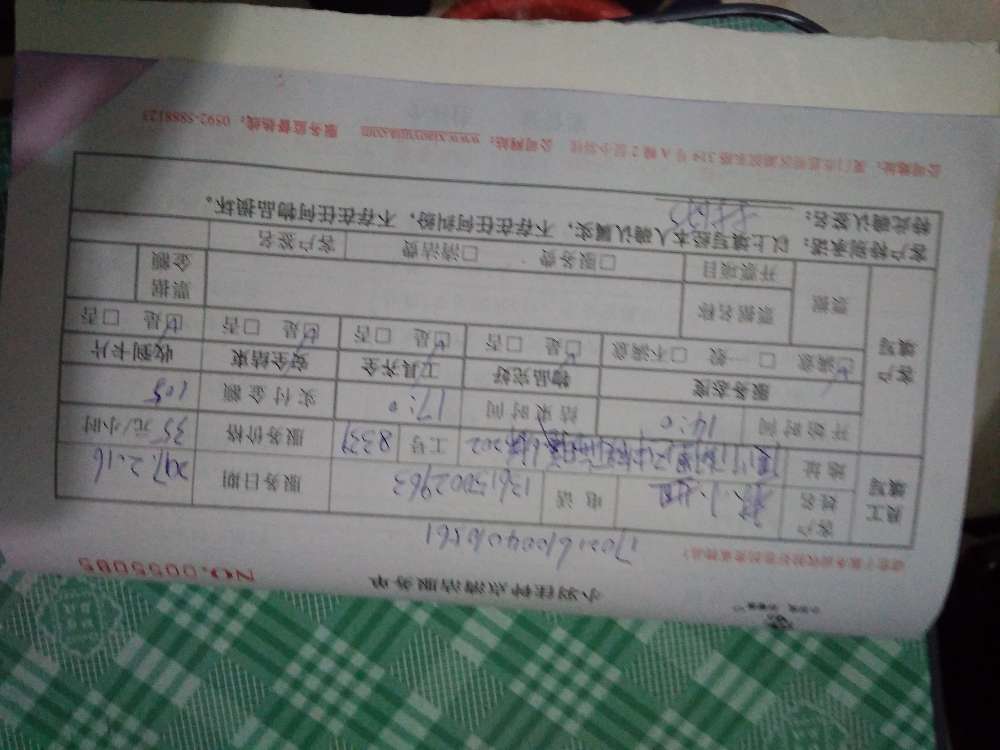 小羽佳钟点清洁服务单
NO.0055085
1702161004010561
员工填写
客户姓名
电话 13615002963
服务日期 2017.2.16
地址
202
工号 8339
服务价格 35元/小时
开始时间 14:0
结束时间 17:0
实付金额 105
客户填写
服务态度 物品完好 工具齐全 安全结束 收到卡片
☑满意 □一般 □不满意 ☑是 □否 ☑是 □否 ☑是 □否 ☑是 □否
票据
票据名称
票据金额
开票项目 □服务费 □清洁费
客户签名
客户特别承诺：以上填写经本人确认属实，不存在任何纠纷，不存在任何物品损坏。
特此确认签名：
公司地址：厦门市思明区湖滨东路319号A幢2层小羽佳 公司网站：www.xiaoyujia.com 服务监督热线：0592-5888123